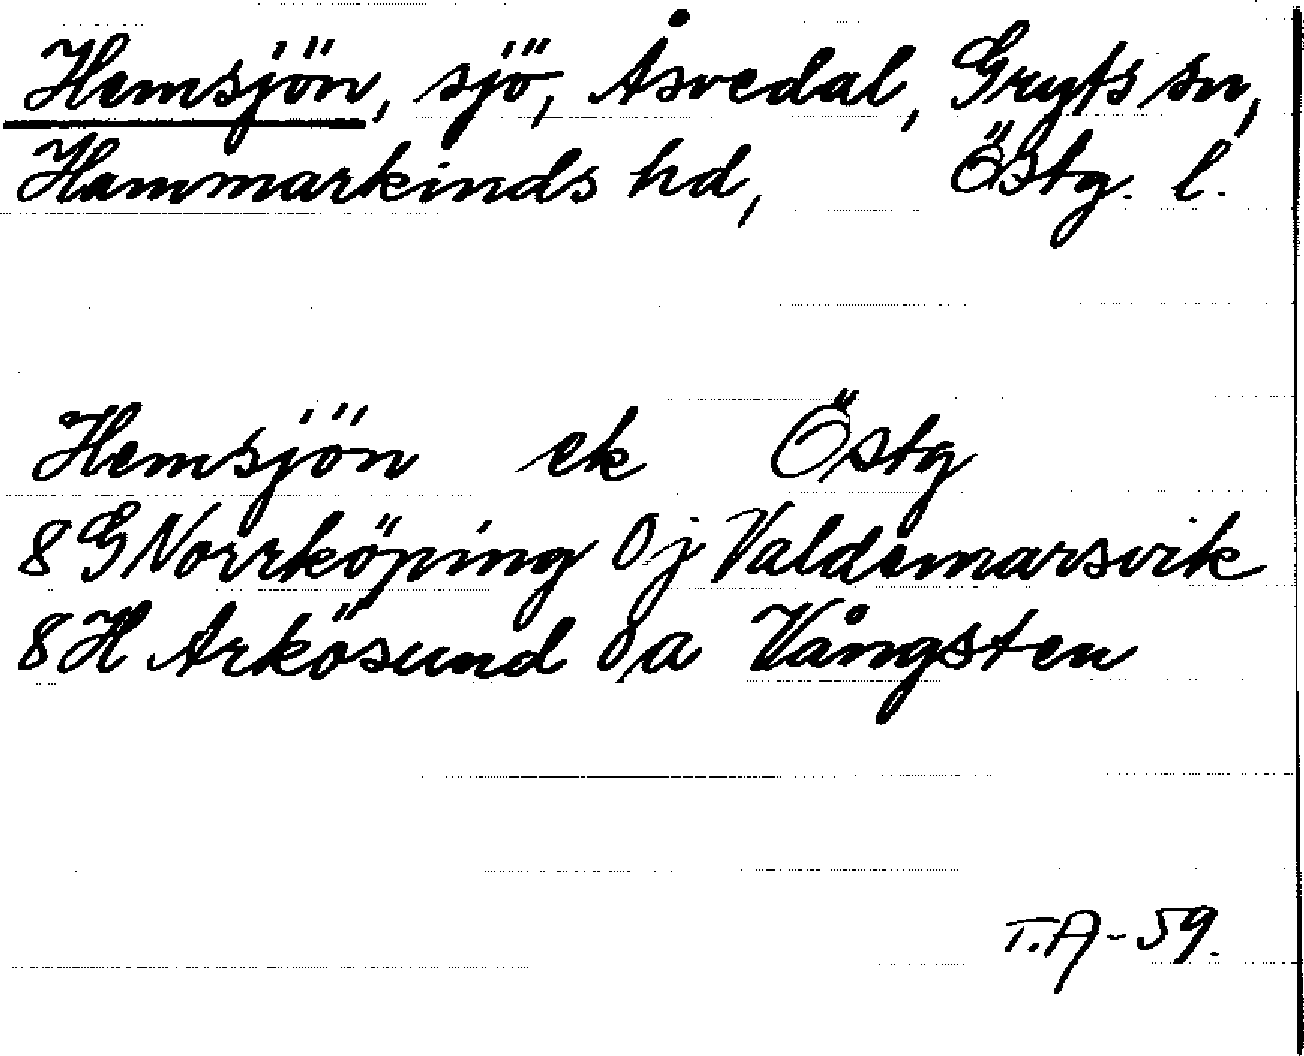 Hemsjön, sjö, Åsvedal, Gryts sn,
Hammarkinds hd, Östg. l.
Hemsjön ek Östg
8 G Norrköping 0 j Valdemarsvik
8 H Arkösund 0 a Vångsten
T.A-59.